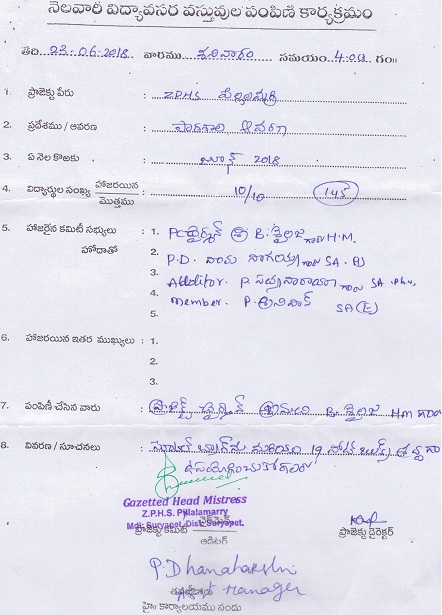 నెలవారీ విద్యావసర వస్తువుల పంపిణి కార్యక్రమం
తేది 23.06.2018 వారము శనివారం సమయం 4:00 గం॥
1. ప్రాజెక్టు పేరు : ZPHS పిల్లలమర్రి
2. ప్రదేశము / ఆవరణ : పాఠశాల ఆవరణ
3. ఏ నెల కొఱకు : జూన్ 2018
4. విద్యార్థుల సంఖ్య హాజరయిన / మొత్తము : 10/10 145
5. హాజరైన కమిటీ సభ్యులు : 1. చైర్మన్ శ్రీ B. శైలజ గారు H.M.
హోదాతో 2. P.D. దామ నాగయ్య గారు SA.
3. Auditor. P. సత్యనారాయణ గారు SA. Phy.
4. Member. P. శ్రీనివాస్ SA (E)
5.
6. హాజరయిన ఇతర ముఖ్యులు : 1.
2.
3.
7. పంపిణీ చేసిన వారు : ప్రాజెక్ట్ చైర్మన్ శ్రీమతి B. శైలజ HM గారు
8. వివరణ / సూచనలు : స్కూల్ బ్యాగ్ మరియు 19 నోట్ బుక్స్
ఉపయోగించుకోగలరు
Gazetted Head Mistress
Z.P.H.S. Pillalamarry
Mdl: Suryapet, Dist: Suryapet.
ప్రాజెక్టు కమిటీ చైర్మెన్ ప్రాజెక్టు డైరెక్టర్
ఆడిటర్
P. Dhanalakshmi
Manager
హై॥ కార్యాలయము నందు